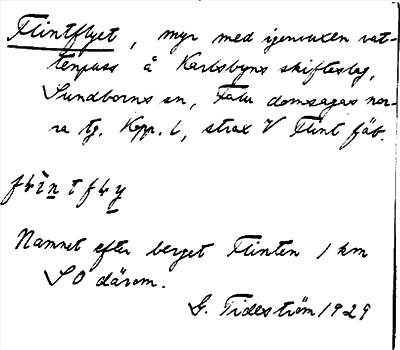 Flintflyet, myr med igenvuxen vat-
tenpuss å Karlsbyns skifteslag,
Sundborns sn, Falu domsagas nor-
ra tg. Kopp. l., strax V Flint fäb.
Namnet efter berget Flinten 1 km
SO därom.
G. Tideström 1929